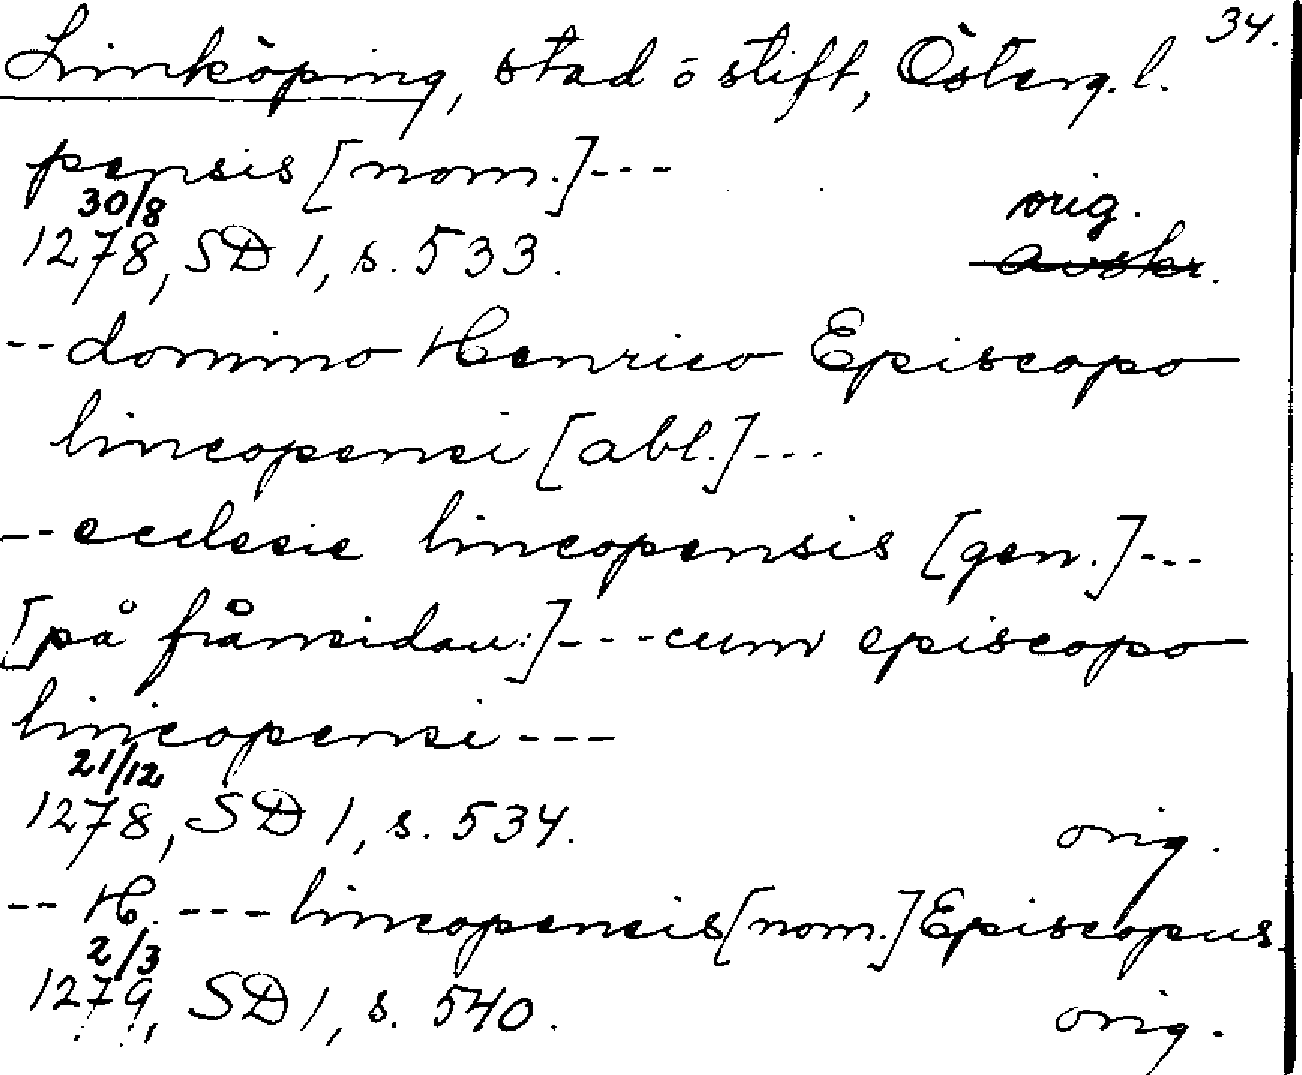 34.
Linköping, stad o stift, Österg. l.
pensis [nom.]---
30/8 orig.
1278, SD 1, s. 533. avskr.
-- domino Henrico Episcopo
lincopensi [abl.]---
-- ecclesie lincopensis [gen.]---
[på frånsidan:]---cum episcopo
lincopensi ---
21/12
1278, SD 1, s. 534. orig.
-- H. --- lincopensis [nom.] Episcopus
2/3
1279, SD 1, s. 540. orig.